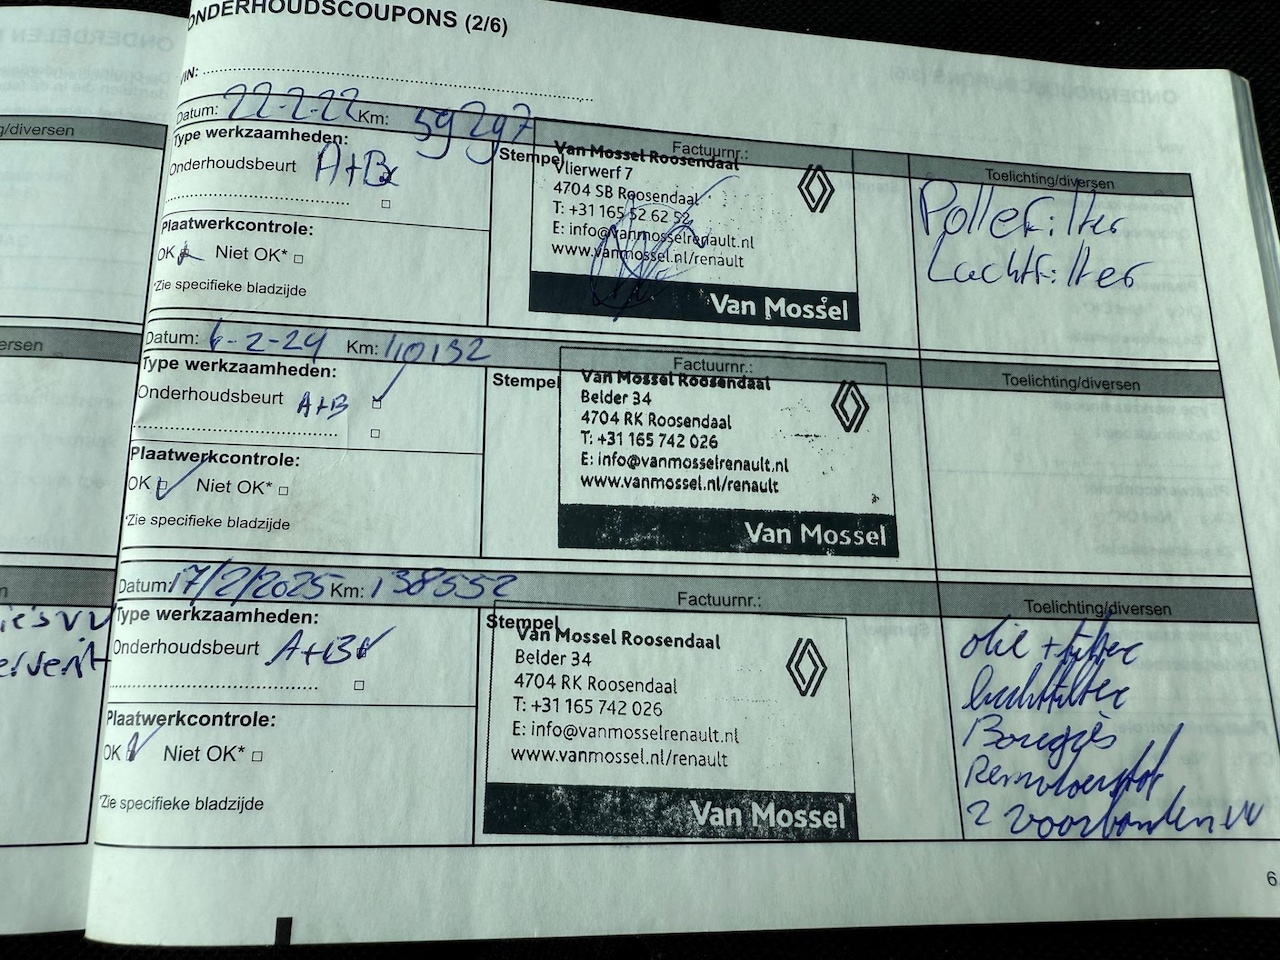 ONDERHOUDSCOUPONS (2/6)
VIN:
Datum: 22-2-22 Km: 59297
Type werkzaamheden:
Onderhoudsbeurt A+B
Plaatwerkcontrole:
OK Niet OK*
*Zie specifieke bladzijde
Stempel
Factuurnr.:
Van Mossel Roosendaal
Vlierwerf 7
4704 SB Roosendaal
T: +31 165 52 62 52
E: info@vanmosselrenault.nl
www.vanmossel.nl/renault
Van Mossel
Toelichting/diversen
Pollefilter
Luchtfilter
Datum: 6-2-24 Km: 110132
Type werkzaamheden:
Onderhoudsbeurt A+B
Plaatwerkcontrole:
OK Niet OK*
*Zie specifieke bladzijde
Stempel
Factuurnr.:
Van Mossel Roosendaal
Belder 34
4704 RK Roosendaal
T: +31 165 742 026
E: info@vanmosselrenault.nl
www.vanmossel.nl/renault
Van Mossel
Toelichting/diversen
Datum: 17/2/2025 Km: 138552
Type werkzaamheden:
Onderhoudsbeurt A+B
Plaatwerkcontrole:
OK Niet OK*
*Zie specifieke bladzijde
Stempel
Factuurnr.:
Van Mossel Roosendaal
Belder 34
4704 RK Roosendaal
T: +31 165 742 026
E: info@vanmosselrenault.nl
www.vanmossel.nl/renault
Van Mossel
Toelichting/diversen
olie + filter
luchtfilter
Bougies
Remvloeistof
2 voorbanden vv
6